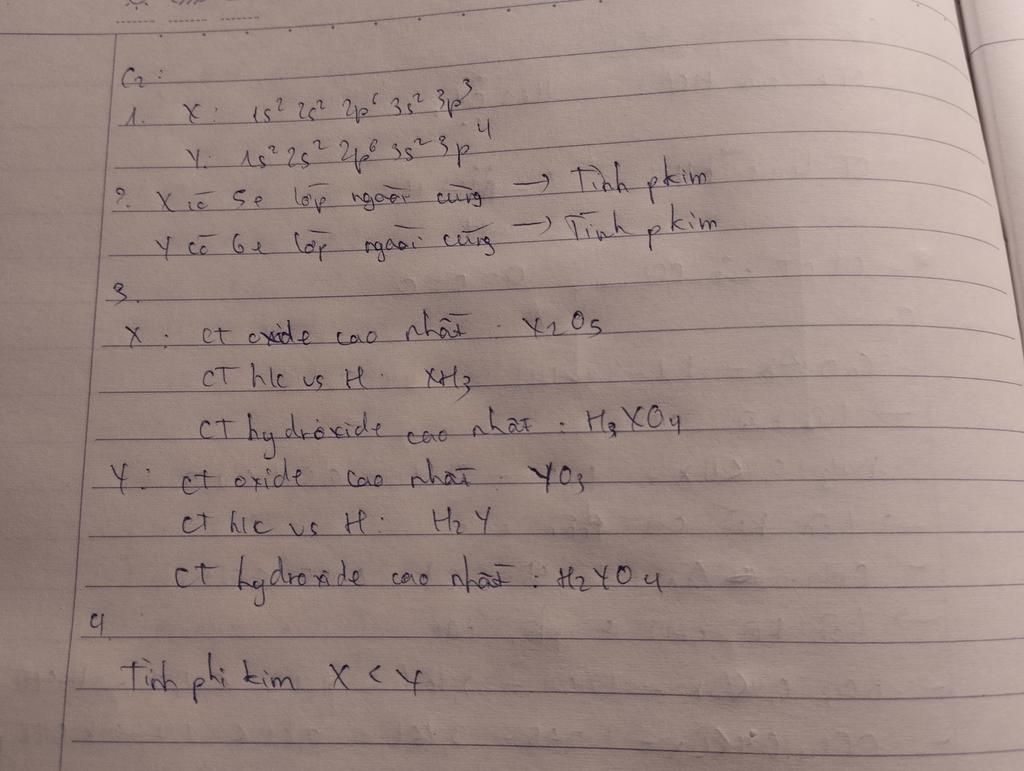 C2:
1. X: 1s² 2s² 2p⁶ 3s² 3p³
Y: 1s² 2s² 2p⁶ 3s² 3p⁴
2. X có 5e lớp ngoài cùng → Tính pkim
Y có 6e lớp ngoài cùng → Tính pkim
3.
X: CT oxide cao nhất: X₂O₅
CT h/c vs H: XH₃
CT hydroxide cao nhất: H₃XO₄
Y: CT oxide cao nhất: YO₃
CT h/c vs H: H₂Y
CT hydroxide cao nhất: H₂YO₄
4.
Tính phi kim X < Y